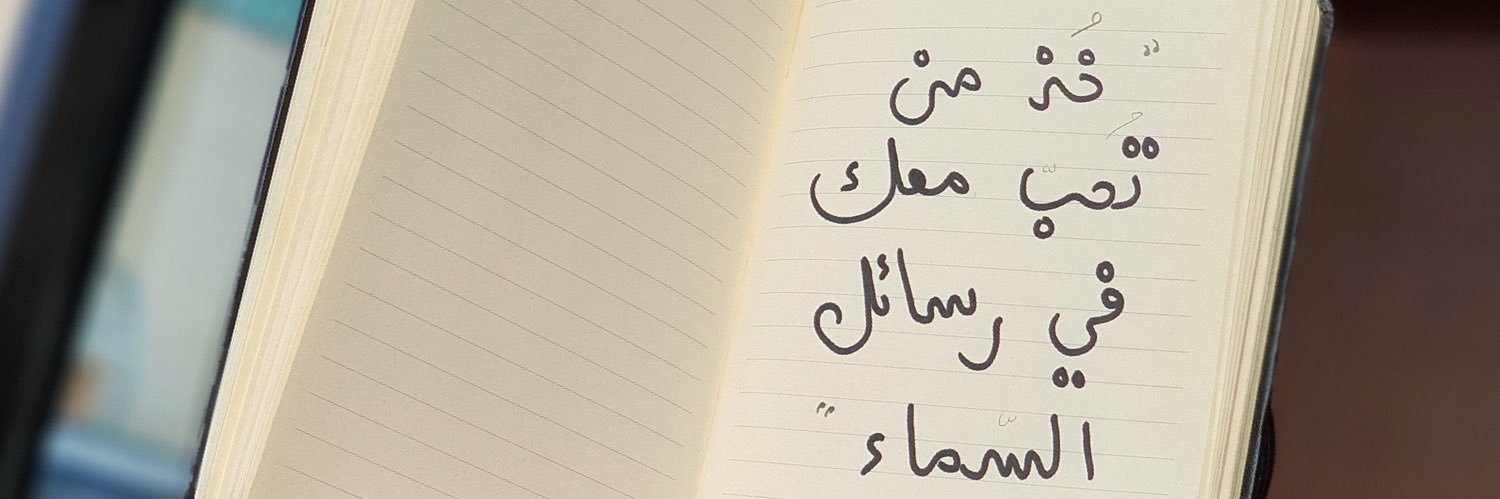 "خُذ من
تُحبّ معك
في رسائل
السّماء"